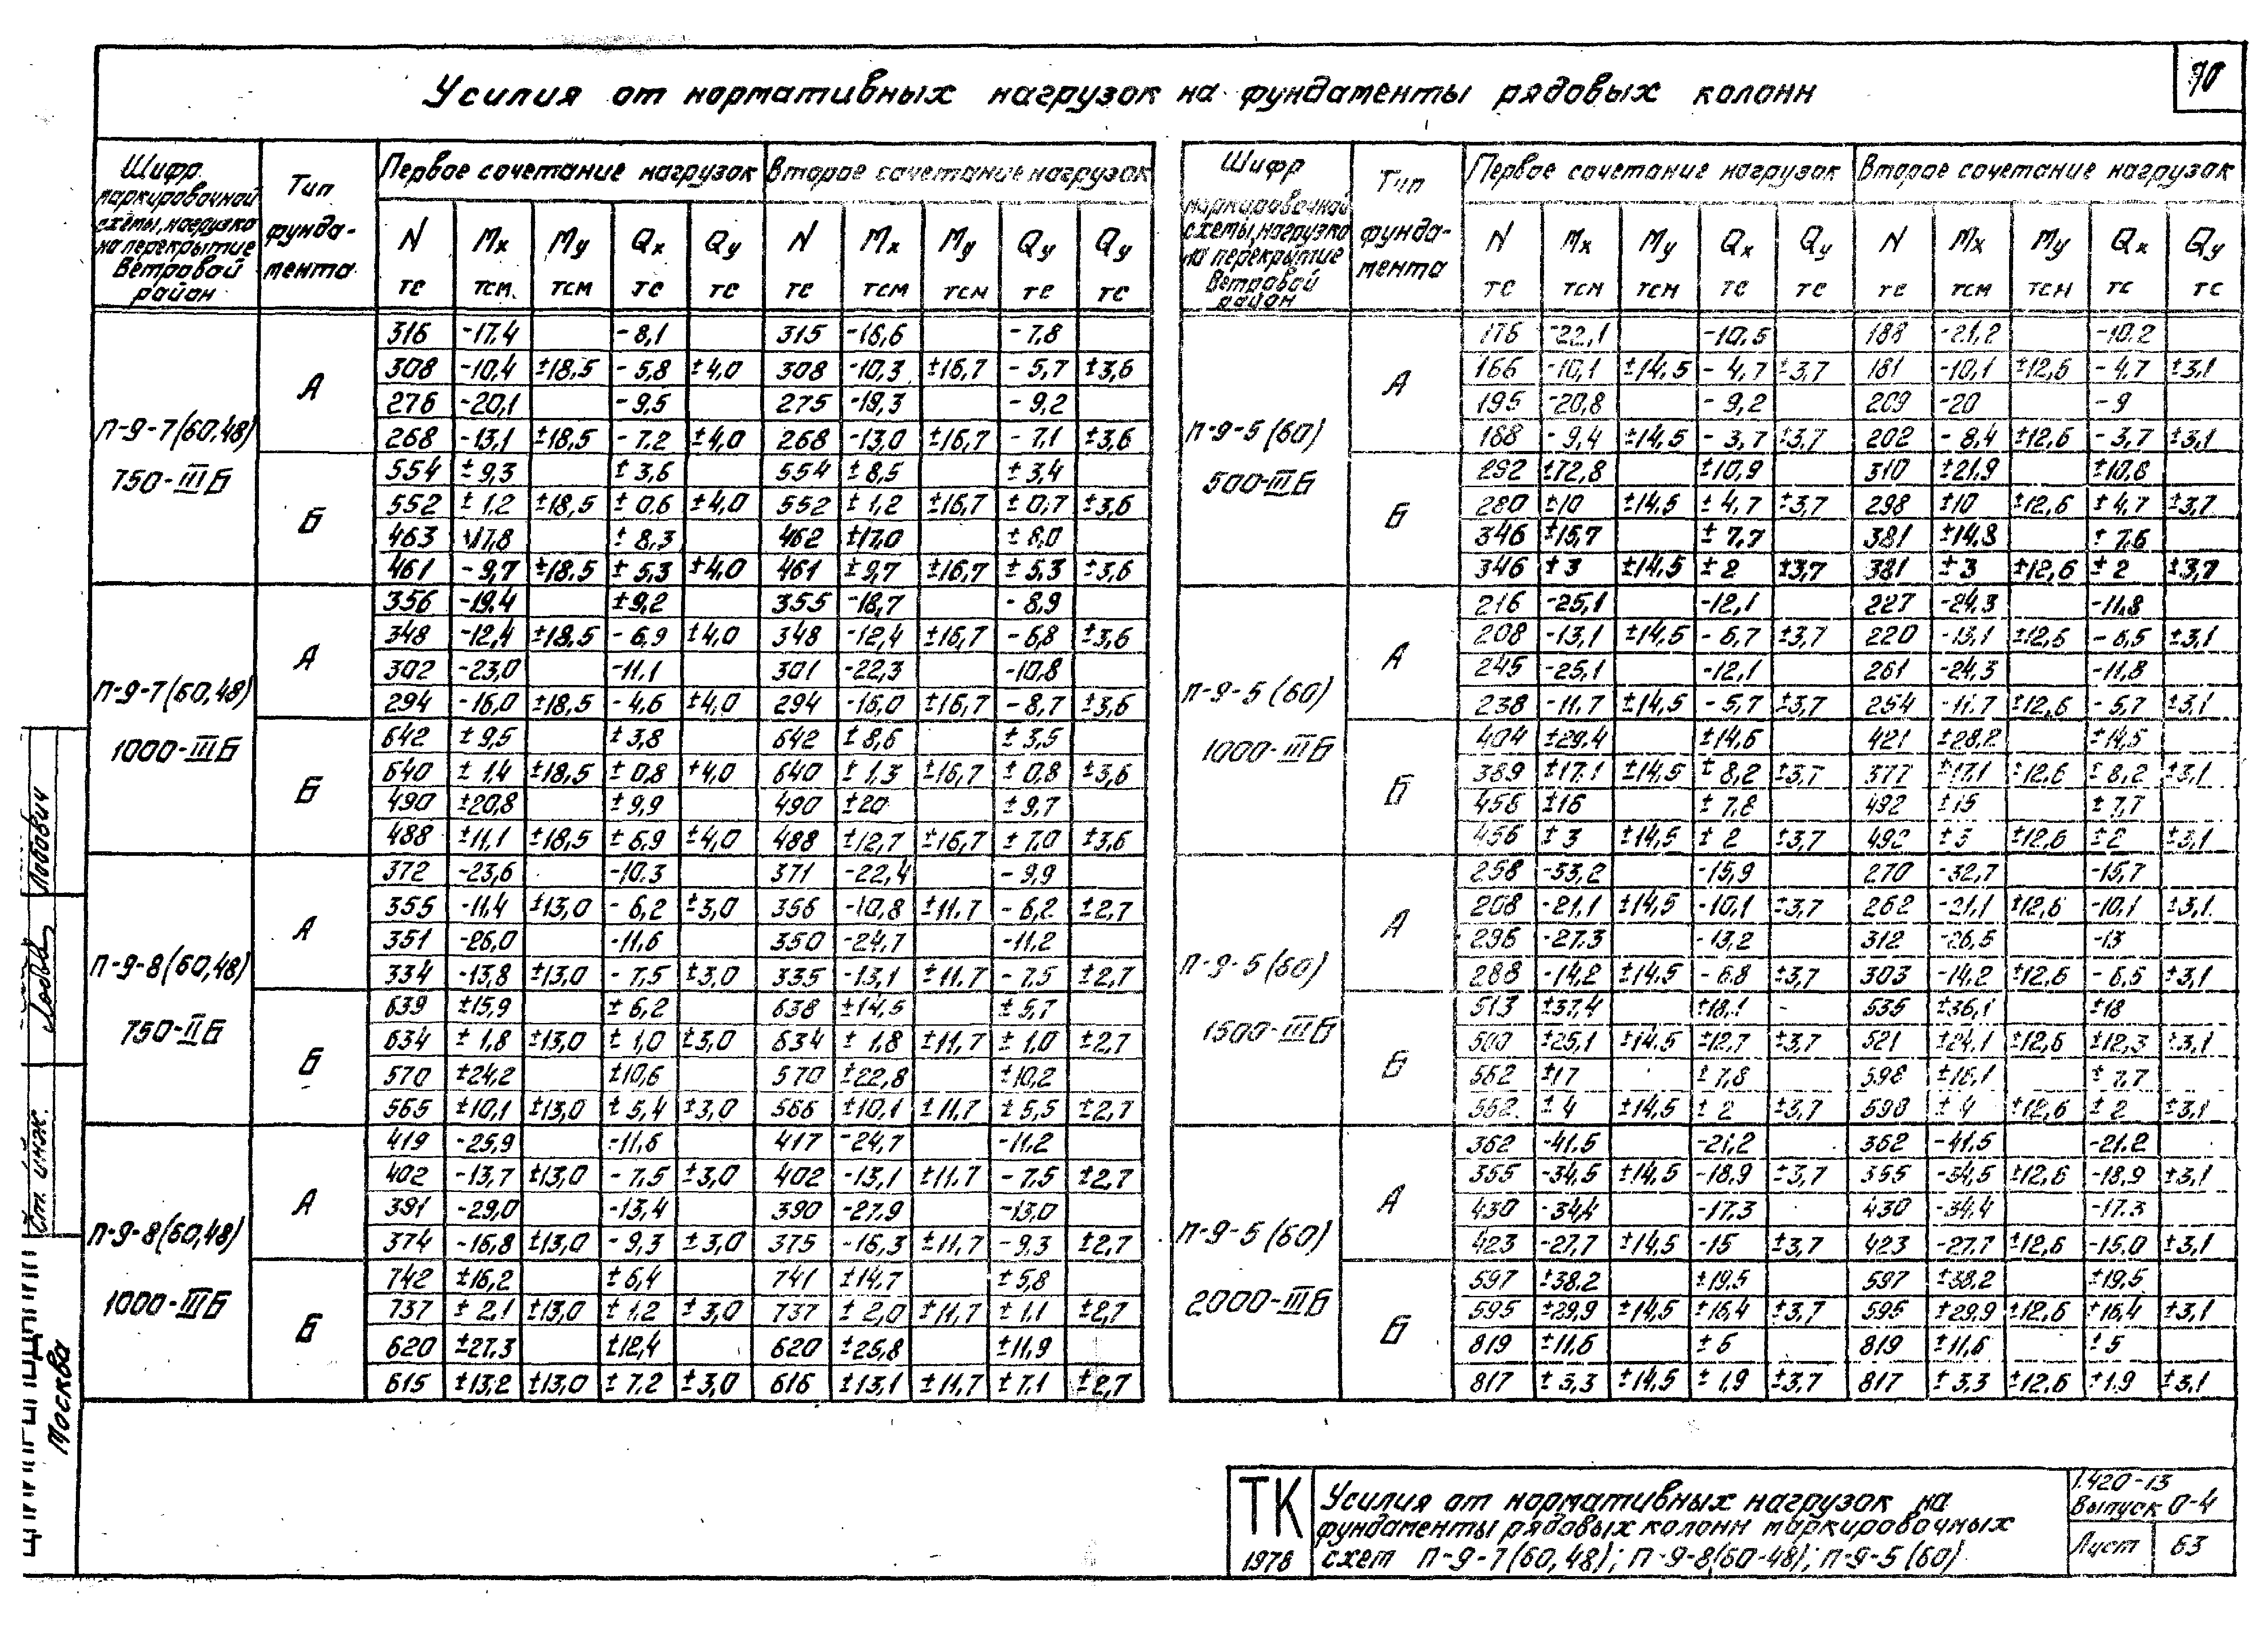 70
Усилия от нормативных нагрузок на фундаменты рядовых колонн
Шифр маркировочной схемы, нагрузка на перекрытие Ветровой район | Тип фундамента | Первое сочетание нагрузок | Второе сочетание нагрузок
N тс | Mx тсм | My тсм | Qx тс | Qy тс | N тс | Mx тсм | My тсм | Qy тс | Qy тс
П-9-7(60,48) 750-IIIБ
А
316 -17,4 -8,1 315 -16,6 -7,8
308 -10,4 ±18,5 -5,8 ±4,0 308 -10,3 ±16,7 -5,7 ±3,6
276 -20,1 -9,5 275 -19,3 -9,2
268 -13,1 ±18,5 -7,2 ±4,0 268 -13,0 ±16,7 -7,1 ±3,6
Б
554 ±9,3 ±3,6 554 ±8,5 ±3,4
552 ±1,2 ±18,5 ±0,6 ±4,0 552 ±1,2 ±16,7 ±0,7 ±3,6
463 ±17,8 ±8,3 462 ±17,0 ±8,0
461 -9,7 ±18,5 ±5,3 ±4,0 461 ±9,7 ±16,7 ±5,3 ±3,6
П-9-7(60,48) 1000-IIIБ
А
356 -19,4 ±9,2 355 -18,7 -8,9
348 -12,4 ±18,5 -6,9 ±4,0 348 -12,4 ±16,7 -6,8 ±3,6
302 -23,0 -11,1 301 -22,3 -10,8
294 -16,0 ±18,5 -4,6 ±4,0 294 -16,0 ±16,7 -8,7 ±3,6
Б
642 ±9,5 ±3,8 642 ±8,6 ±3,5
640 ±1,4 ±18,5 ±0,8 +4,0 640 ±1,3 ±16,7 ±0,8 ±3,6
490 ±20,8 ±9,9 490 ±20 ±9,7
488 ±11,1 ±18,5 ±6,9 ±4,0 488 ±12,7 ±16,7 ±7,0 ±3,6
П-9-8(60,48) 750-IIБ
А
372 -23,6 -10,3 371 -22,4 -9,9
355 -11,4 ±13,0 -6,2 ±3,0 356 -10,8 ±11,7 -6,2 ±2,7
351 -26,0 -11,6 350 -24,7 -11,2
334 -13,8 ±13,0 -7,5 ±3,0 335 -13,1 ±11,7 -7,5 ±2,7
Б
639 ±15,9 ±6,2 638 ±14,5 ±5,7
634 ±1,8 ±13,0 ±1,0 ±3,0 634 ±1,8 ±11,7 ±1,0 ±2,7
570 ±24,2 ±10,6 570 ±22,8 ±10,2
565 ±10,1 ±13,0 ±5,4 ±3,0 566 ±10,1 ±11,7 ±5,5 ±2,7
П-9-8(60,48) 1000-IIIБ
А
419 -25,9 -11,6 417 -24,7 -11,2
402 -13,7 ±13,0 -7,5 ±3,0 402 -13,1 ±11,7 -7,5 ±2,7
391 -29,0 -13,4 390 -27,9 -13,0
374 -16,8 ±13,0 -9,3 ±3,0 375 -16,3 ±11,7 -9,3 ±2,7
Б
742 ±16,2 ±6,4 741 ±14,7 ±5,8
737 ±2,1 ±13,0 ±1,2 ±3,0 737 ±2,0 ±11,7 ±1,1 ±2,7
620 ±27,3 ±12,4 620 ±25,8 ±11,9
615 ±13,2 ±13,0 ±7,2 ±3,0 616 ±13,1 ±11,7 ±7,1 ±2,7
Шифр маркировочной схемы, нагрузка на перекрытие Ветровой район | Тип фундамента | Первое сочетание нагрузок | Второе сочетание нагрузок
N тс | Mx тсм | My тсм | Qx тс | Qy тс | N тс | Mx тсм | My тсм | Qx тс | Qy тс
П-9-5(60) 500-IIIБ
А
176 -22,1 -10,5 188 -21,2 -10,2
166 -10,1 ±14,5 -4,7 ±3,7 181 -10,1 ±12,6 -4,7 ±3,1
195 -20,8 -9,2 209 -20 -9
188 -9,4 ±14,5 -3,7 ±3,7 202 -8,4 ±12,6 -3,7 ±3,1
Б
292 ±72,8 ±10,9 310 ±21,9 ±10,8
280 ±10 ±14,5 ±4,7 ±3,7 298 ±10 ±12,6 ±4,7 ±3,7
346 ±15,7 ±7,7 381 ±14,8 ±7,6
346 ±3 ±14,5 ±2 ±3,7 381 ±3 ±12,6 ±2 ±3,7
П-9-5(60) 1000-IIIБ
А
216 -25,1 -12,1 227 -24,3 -11,8
208 -13,1 ±14,5 -6,7 ±3,7 220 -13,1 ±12,6 -6,5 ±3,1
245 -25,1 -12,1 261 -24,3 -11,8
238 -11,7 ±14,5 -5,7 ±3,7 254 -11,7 ±12,6 -5,7 ±3,1
Б
404 ±29,4 ±14,6 421 ±28,2 ±14,5
389 ±17,1 ±14,5 ±8,2 ±3,7 377 ±17,1 ±12,6 ±8,2 ±3,1
456 ±16 ±7,8 492 ±15 ±7,7
456 ±3 ±14,5 ±2 ±3,7 492 ±3 ±12,6 ±2 ±3,1
П-9-5(60) 1500-IIIБ
А
258 -33,2 -15,9 270 -32,7 -15,7
208 -21,1 ±14,5 -10,1 ±3,7 262 -21,1 ±12,6 -10,1 ±3,1
296 -27,3 -13,2 312 -26,5 -13
288 -14,2 ±14,5 -6,8 ±3,7 303 -14,2 ±12,6 -6,6 ±3,1
Б
513 ±37,4 ±18,1 535 ±36,1 ±18
500 ±25,1 ±14,5 ±12,7 ±3,7 521 ±24,1 ±12,6 ±12,3 ±3,1
562 ±17 ±7,8 598 ±16,1 ±7,7
562 ±4 ±14,5 ±2 ±3,7 598 ±4 ±12,6 ±2 ±3,1
П-9-5(60) 2000-IIIБ
А
362 -41,5 -21,2 362 -41,5 -21,2
355 -34,5 ±14,5 -18,9 ±3,7 355 -34,5 ±12,6 -18,9 ±3,1
430 -34,4 -17,3 430 -34,4 -17,3
423 -27,7 ±14,5 -15 ±3,7 423 -27,7 ±12,6 -15,0 ±3,1
Б
597 ±38,2 ±19,5 597 ±38,2 ±19,5
595 ±29,9 ±14,5 ±16,4 ±3,7 595 ±29,9 ±12,6 ±16,4 ±3,1
819 ±11,6 ±5 819 ±11,6 ±5
817 ±3,3 ±14,5 ±1,9 ±3,7 817 ±3,3 ±12,6 ±1,9 ±3,1
Ст. инж. Лобович
Москва
ТК
1978
Усилия от нормативных нагрузок на
фундаменты рядовых колонн маркировочных
схем П-9-7(60,48); П-9-8(60-48); П-9-5(60)
1.420-13
Выпуск 0-4
Лист 63